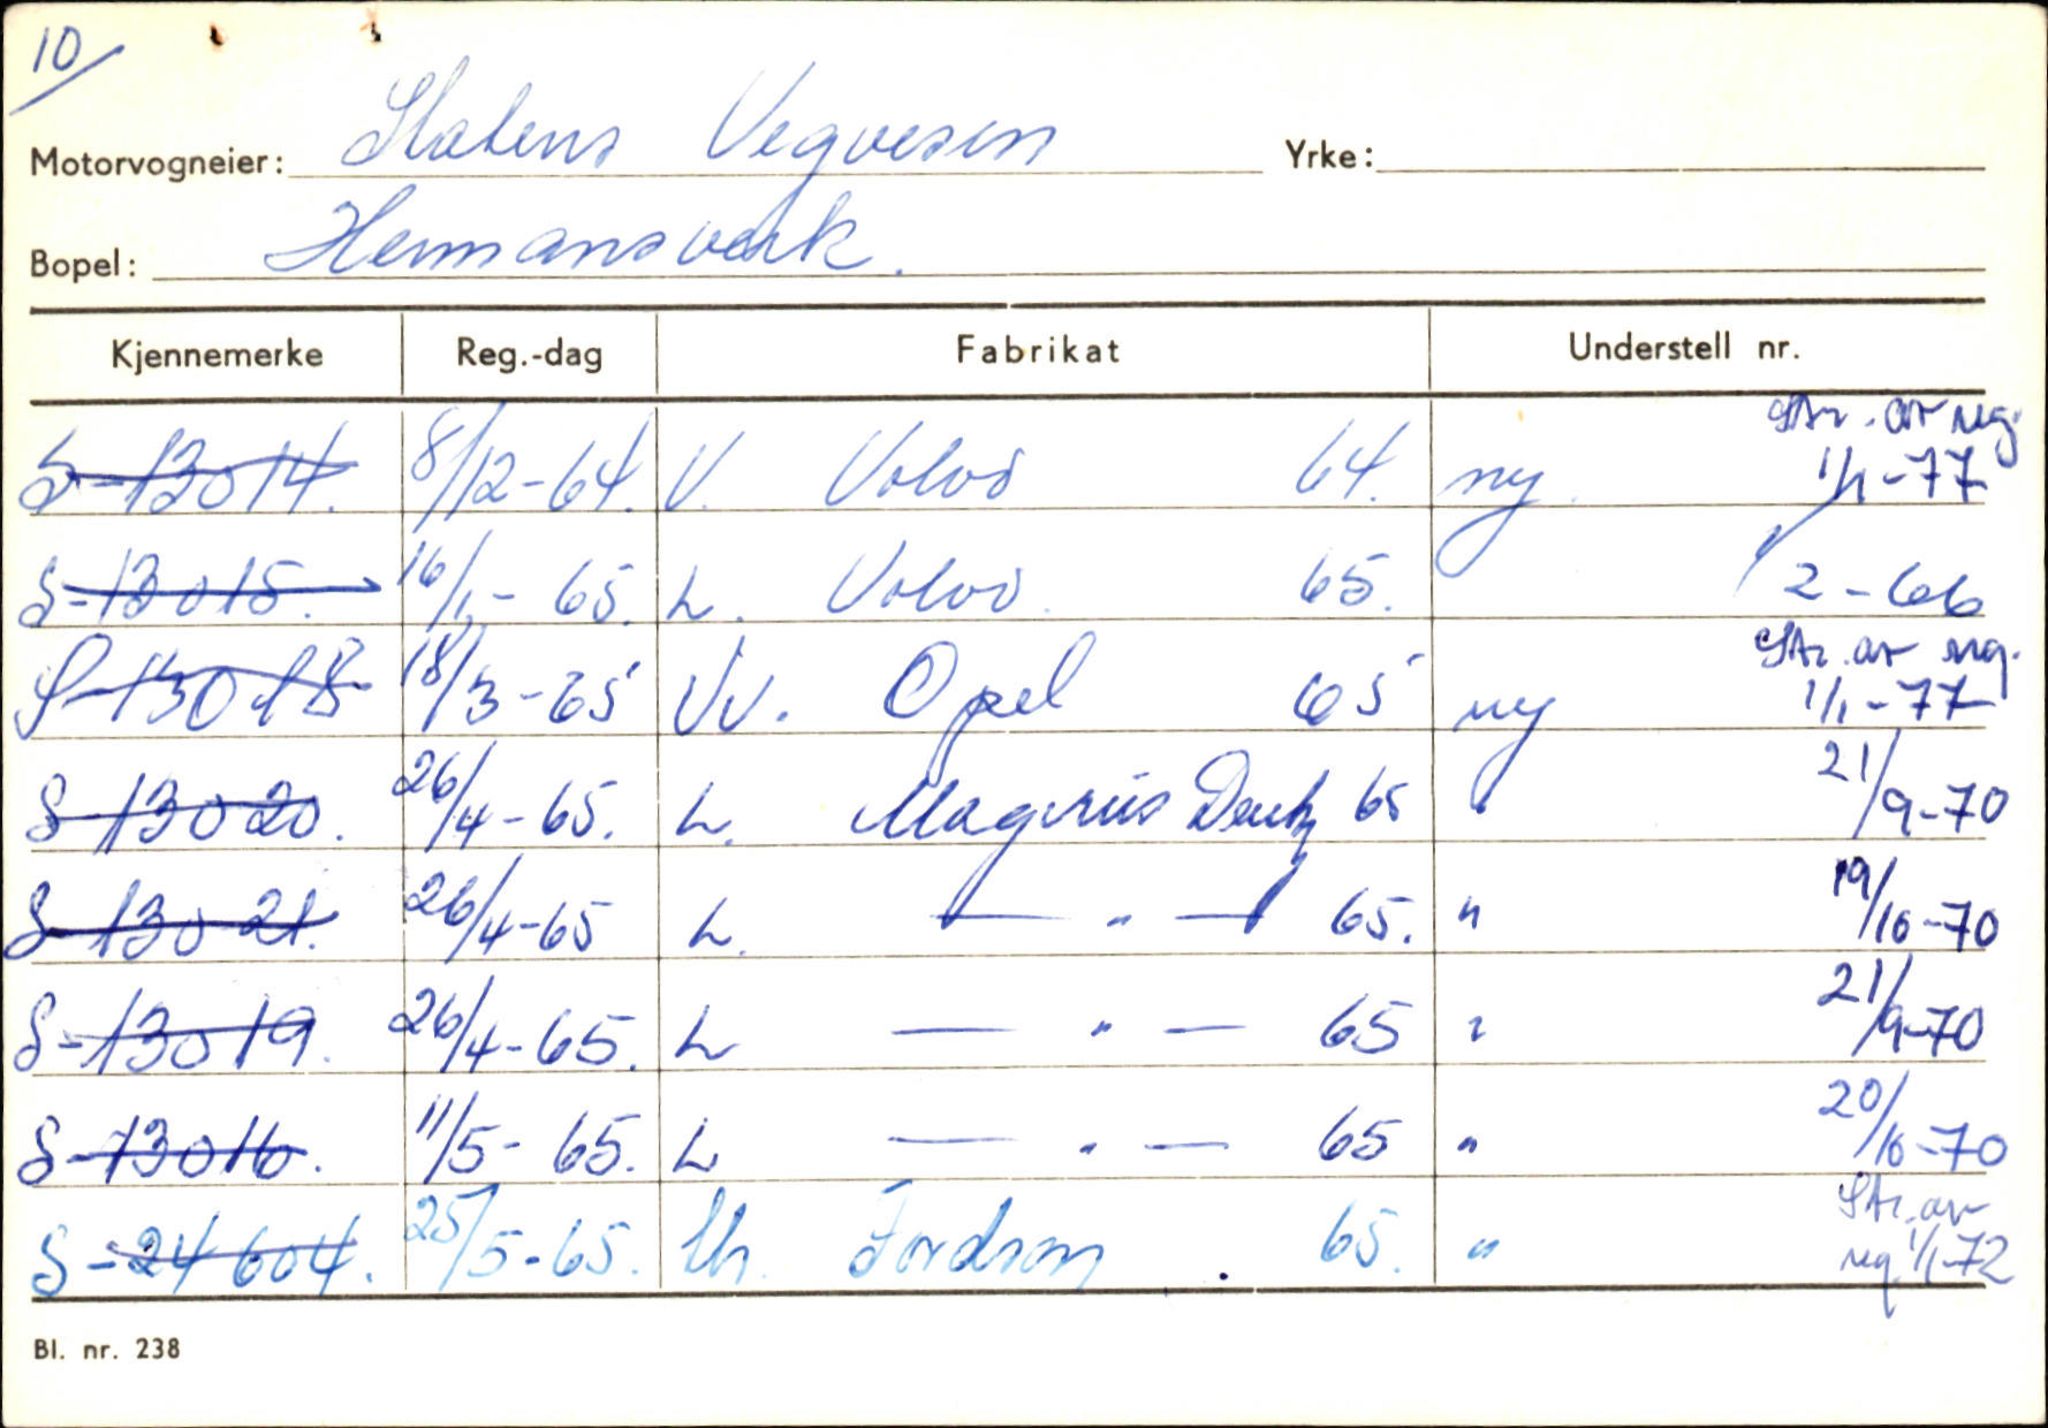 10/
Motorvogneier: Statens Vegvesen Yrke:
Bopel: Hermansverk.
Kjennemerke Reg.-dag Fabrikat Understell nr.
S-13014. 8/12-64. V. Volvo 64. ny. Str. av reg. 1/1-77
S-13015. 16/1-65. L. Volvo. 65. 2-66
S-13018 18/3-65 Vv. Opel 65 ny Str. av reg. 1/1-77
S-13020. 26/4-65. L. Magirus Deutz 65 " 21/9-70
S-13021. 26/4-65 L. — " — 65. " 19/10-70
S-13019. 26/4-65. L — " — 65 " 21/9-70
S-13016. 11/5-65. L — " — 65 " 20/10-70
S-24604. 25/5-65. Fordson. 65. " Str. av reg 1/1-72
Bl. nr. 238